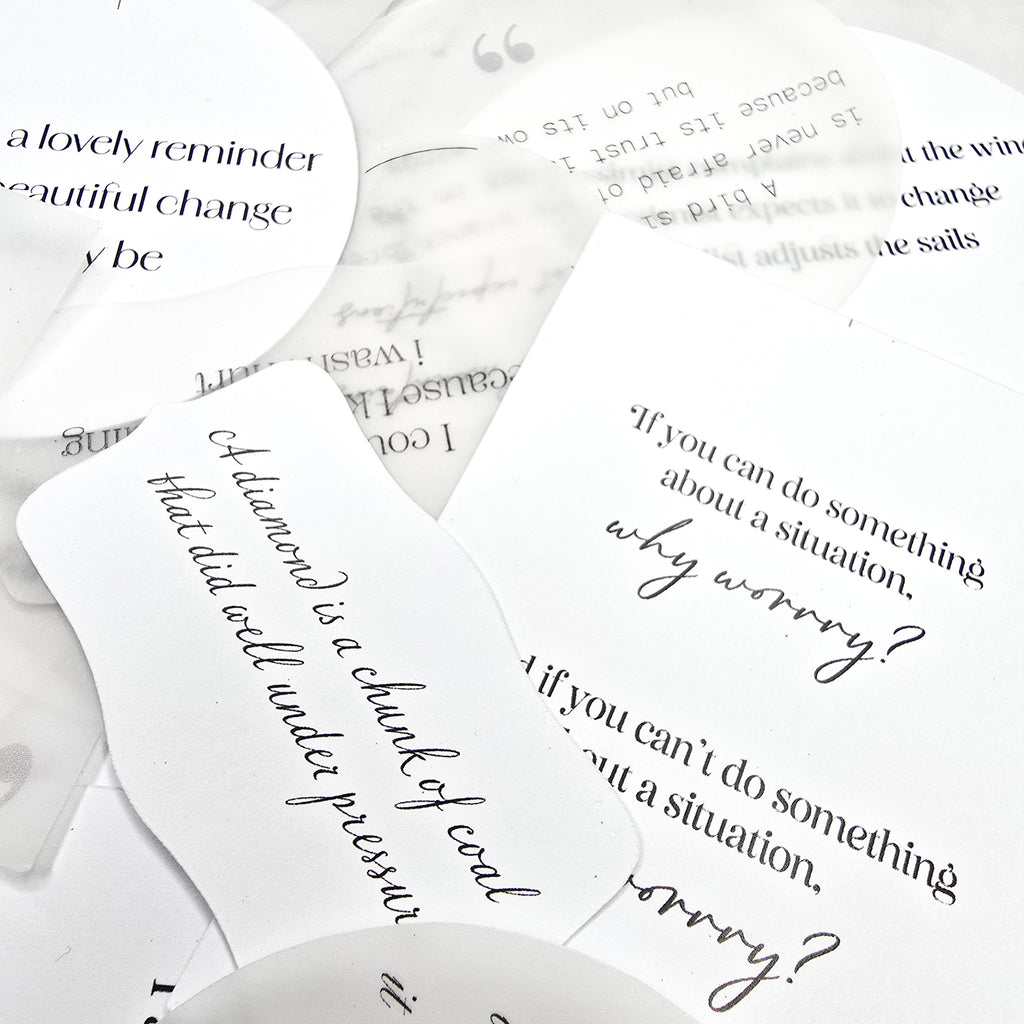 a lovely reminder
beautiful change
be
“
A bird si
is never afraid of
because its trust i
but on its ow
t the wind
expects it to change
adjusts the sails
I cou
ecause I k
i wasn hurt
A diamond is a chunk of coal
that did well under pressur
If you can do something
about a situation,
why worrry?
d if you can't do something
ut a situation,
orrry?
it